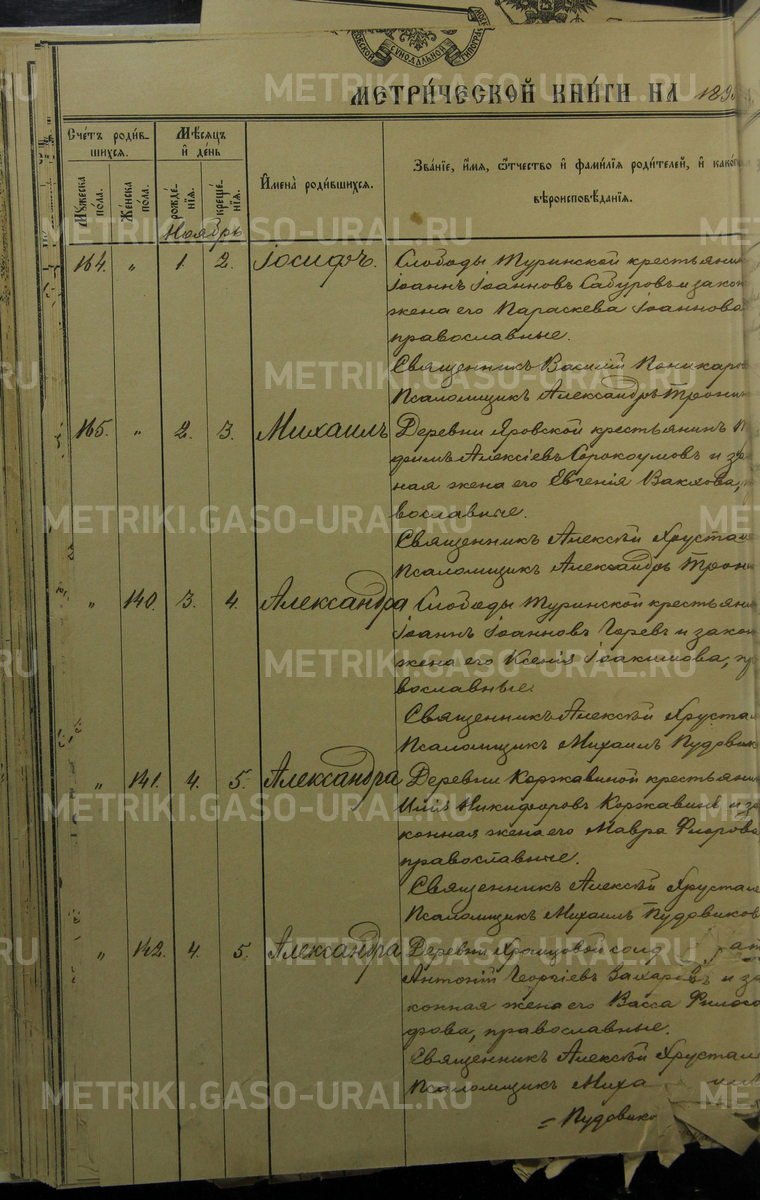 СѴНОДАЛЬНОЙ
МЕТРИ́ЧЕСКОЙ КНИ́ГИ НА 189
Сче́тъ роди́в-
шихся.
Му́жеска
по́ла.
Же́нска
по́ла.
Мѣ́сяцъ
и҆ де́нь
рожде́-
нїя.
креще́-
нїя.
И҆мена̀ роди́вшихся.
Зва́нїе, и҆́мя, ѻ҆́тчество и҆ фами́лїя роди́телей, и҆
вѣроисповѣ́данїя.
Ноябрь
164. " 1 2. Іосифъ. Слободы Туринской крестьянин
Іоаннъ Іоанновъ Сабуровъ и закон
жена его Параскева Іоаннова
православные.
Священникъ Василій Поникаров
Псаломщикъ Александръ Тронин
165. " 2. 3. Михаилъ Деревни Яровской крестьянинъ
фимъ Алексіевъ Сорокоумовъ и за
ная жена его Евгенія Вакхова,
вославные.
Священникъ Алексѣй Хрустале
Псаломщикъ Александръ Трони
" 140. 3. 4. Александра Слободы Туринской крестьянин
Іоаннъ Іоанновъ Горевъ и закон
жена его Ксенія Іоакимова, пр
вославные.
Священникъ Алексѣй Хрустал
Псаломщикъ Михаилъ Пудовик
" 141. 4. 5. Александра Деревни Коржавиной крестьянин
Илія Никифоровъ Коржавинъ и за
конная жена его Мавра Флорова
православные.
Священникъ Алексѣй Хрустале
Псаломщикъ Михаилъ Пудовиков
" 142. 4. 5. Александра Деревни Храмцовой солд
Антоній Георгіевъ Захаровъ и за
конная жена его Васса Филосо
фова, православные.
Священникъ Алексѣй Хрустал
Псаломщикъ Миха
= Пудовико
METRIKI.GASO-URAL.RU